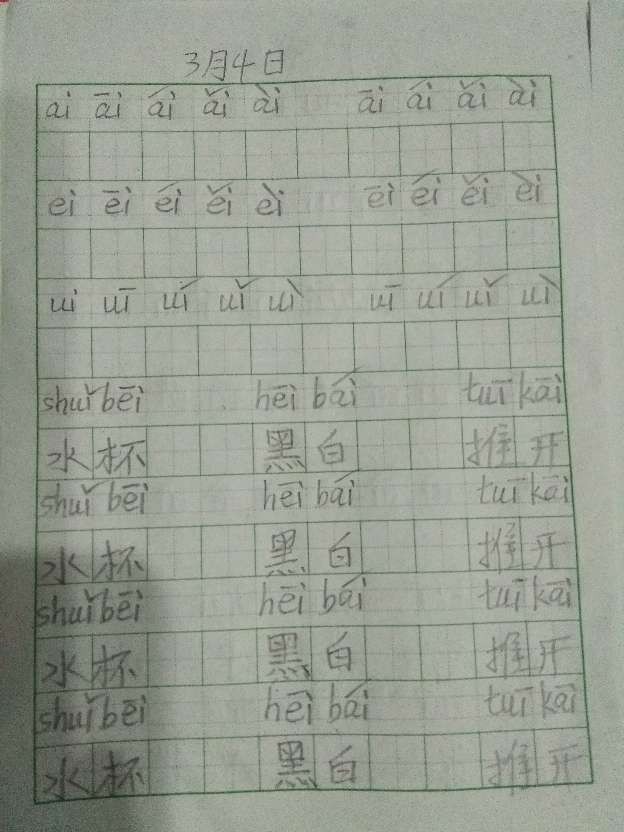 3月4日
ai āi ái ǎi ài āi ái ǎi ài
ei ēi éi ěi èi ēi éi ěi èi
ui uī uí uǐ uì uī uí uǐ uì
shuǐ bēi hēi bái tuī kāi
水杯 黑白 推开
shuǐ bēi hēi bái tuī kāi
水杯 黑白 推开
shuǐ bēi hēi bái tuī kāi
水杯 黑白 推开
shuǐ bēi hēi bái tuī kāi
水杯 黑白 推开